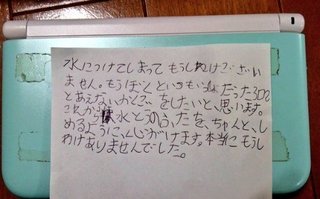 水につけてしまって もうしわけござい
ません。もうぼくといつもいっしょだった3DS
とあえないかくごをしたいと、思います。
これから水とうのふたを、ちゃんと、し
めるように、がけます。本当にもうし
わけありませんでした。